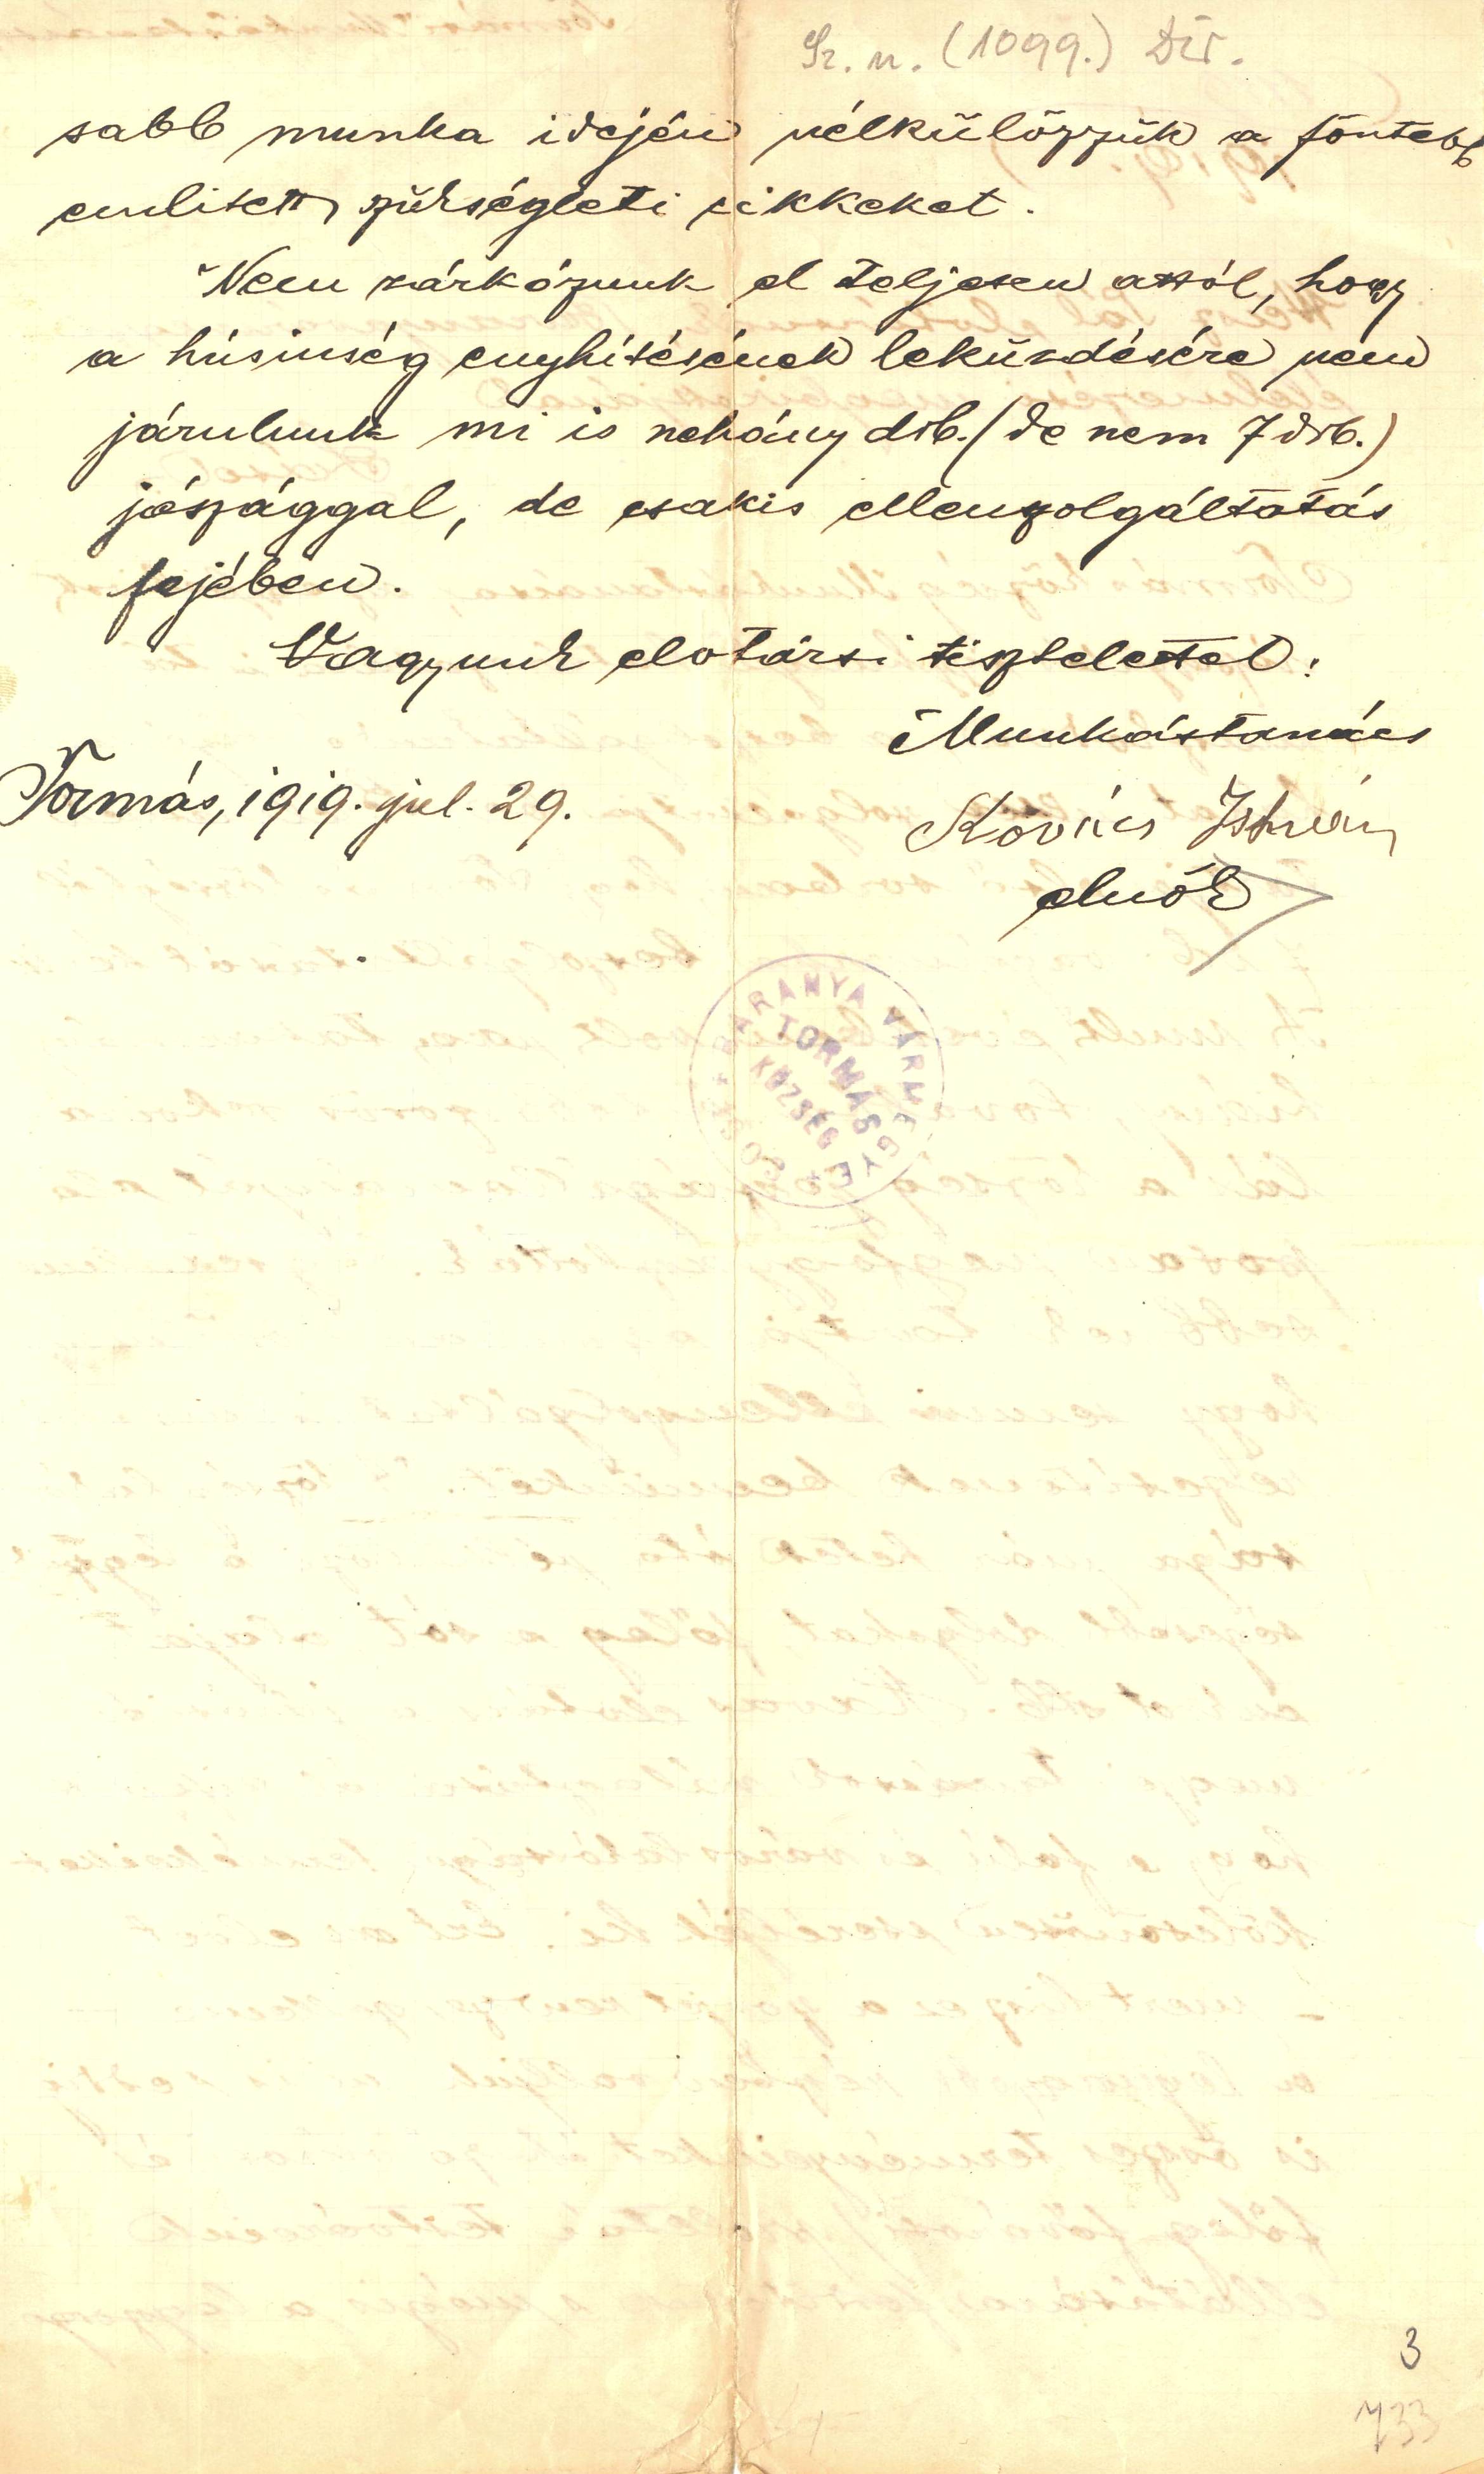 Sz. n. (1099.) Dir.
sabb munka idején nélkülözzük a föntebb
emlitett szükségleti cikkeket.
Nem zárkózunk el teljesen attól, hogy
a húsinség enyhítésének leküzdésére nem
járulunk mi is nehány drb. (de nem 7 drb.)
jószággal, de csakis ellenszolgáltatás
fejében.
Vagyunk elvtársi tisztelettel:
Munkástanács
Tormás, 1919. jul. 29.
Kovács István
elnök
BARANYA VÁRMEGYE
TORMÁS
KÖZSÉG
3
733